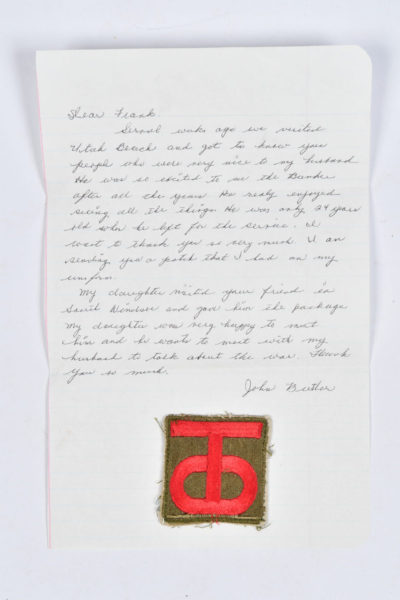 Dear Frank.
Serval weeks ago we visited
Utah Beach and got to know your
people who were very nice to my husband
He was so excited to see the Bunker
after all the years. He really enjoyed
seeing all the things He was only 24 years
old when he left for the service. I
want to thank you so very much. I am
sending you a patch that I had on my
uniform.
My daughter visited your friend in
South Windsor and gave him the package
My daughter was very happy to meet
him and he wants to meet with my
husband to talk about the war. Thank
you so much.
John
TO